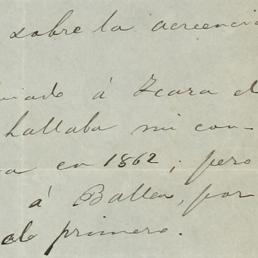 sobre la acreencia
á Icara d
hallaba mi con-
a en 1862; pero
á Ballen, por
do primero.